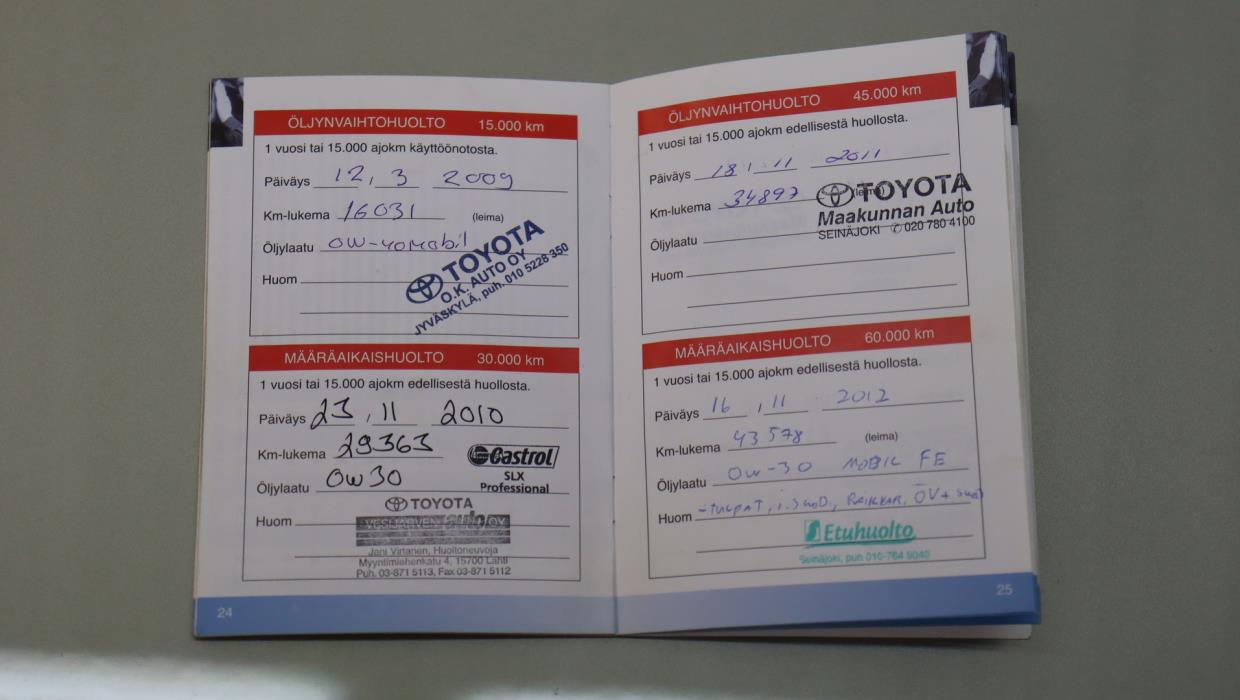 ÖLJYNVAIHTOHUOLTO 15.000 km
1 vuosi tai 15.000 ajokm käyttöönotosta.
Päiväys 12, 3 2009
Km-lukema 16031 (leima)
Öljylaatu 0W-40 Mobil
Huom
TOYOTA
O.K. AUTO OY
JYVÄSKYLÄ, puh. 010 5228 350
MÄÄRÄAIKAISHUOLTO 30.000 km
1 vuosi tai 15.000 ajokm edellisestä huollosta.
Päiväys 23, 11 2010
Km-lukema 29363
Öljylaatu 0W30
Castrol
SLX
Professional
Huom
TOYOTA
VESIJÄRVEN auto OY
Jani Virtanen, Huoltoneuvoja
Myyntimiehenkatu 4, 15700 Lahti
Puh. 03-871 5113, Fax 03-871 5112
24
ÖLJYNVAIHTOHUOLTO 45.000 km
1 vuosi tai 15.000 ajokm edellisestä huollosta.
Päiväys 18, 11 2011
Km-lukema 34897 (leima)
Öljylaatu
Huom
TOYOTA
Maakunnan Auto
SEINÄJOKI ✆ 020 780 4100
MÄÄRÄAIKAISHUOLTO 60.000 km
1 vuosi tai 15.000 ajokm edellisestä huollosta.
Päiväys 16, 11 2012
Km-lukema 43578 (leima)
Öljylaatu 0W-30 MOBIL FE
Huom -TULPAT, I.SUOD., RAIKKAR, ÖV+
Etuhuolto
Seinäjoki, puh 010-764 9040
25